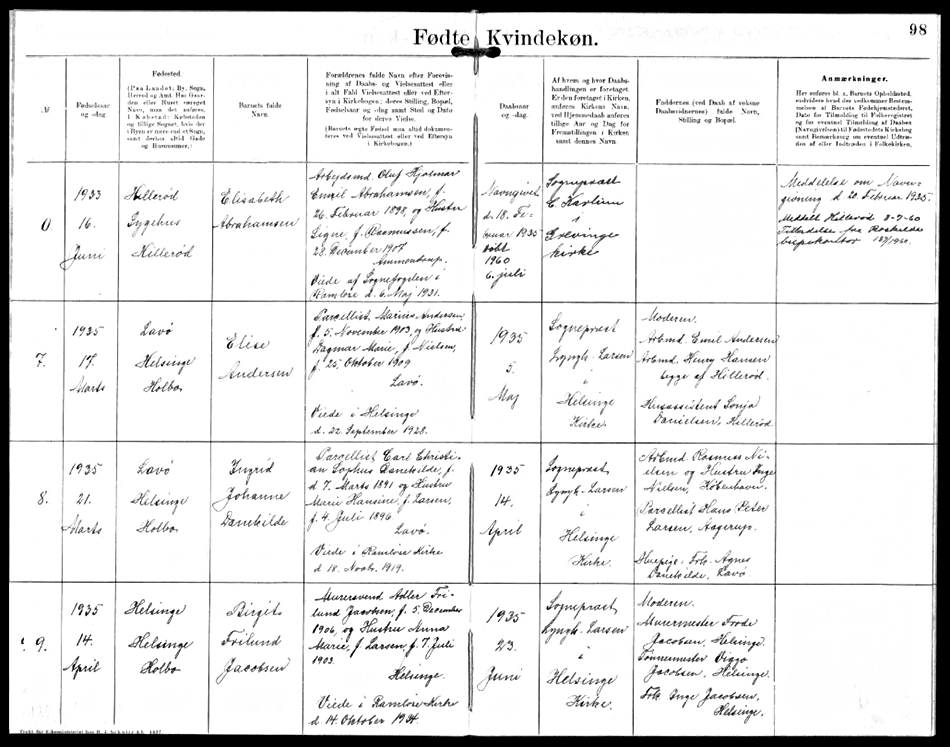 98
Fødte Kvindekøn.
№
Fødselsaar
og -dag.
Fødested.
(Paa Landet: By, Sogn,
Herred og Amt. Has Gaar-
den eller Huset særeget
Navn, maa det anføres.
I Købstad: Købstaden
og tillige Sognet, hvis der
i Byen er mere end et Sogn,
samt derhos altid Gade
og Husnummer.)
Barnets fulde
Navn.
Forældrenes fulde Navn efter Forevis-
ning af Daabs- og Vielsesattest eller
i alt Fald Vielsesattest eller ved Efter-
syn i Kirkebogen; deres Stilling, Bopæl,
Fødselsaar og -dag samt Sted og Dato
for deres Vielse.
(Barnets ægte Fødsel maa altid dokumen-
teres ved Vielsesattest eller ved Eftersyn
i Kirkebogen.)
Daabsaar
og -dag.
Af hvem og hvor Daabs-
handlingen er foretaget.
Er den foretaget i Kirken,
anføres Kirkens Navn,
ved Hjemmedaab anføres
tillige Aar og Dag for
Fremstillingen i Kirken
samt dennes Navn.
Faddernes (ved Daab af voksne
Daabsvidnernes) fulde Navn,
Stilling og Bopæl.
Anmærkninger.
Her anføres bl. a. Barnets Opholdssted,
endvidere hvad der vedkommer Bestem-
melsen af Barnets Fødehjemstederet.
Dato for Tilmelding til Folkeregistret
og for eventuel Tilmelding af Daaben
(Navngivelsen) til Fødestedets Kirkebog
samt Bemærkning om eventuel Udtræ-
den af eller Indtræden i Folkekirken.
0
1933
16.
Juni
Hillerød
Sygehus
Hillerød
Elisabeth
Abrahamsen
Arbejdsmd. Oluf Hjalmar
Emil Abrahamsen, f.
26. Februar 1898, og Hustru
Signe, f. Rasmussen, f.
28. December 1907
Ammendrup.
Viede af Sognefogden i
Ramløse d. 6. Maj 1931.
Navngivet
d. 18. Fe-
bruar 1935
døbt
1960
6. juli
Sognepræst
i
Grevinge
kirke
Meddelelse om Navn-
givning d. 20. Februar 1935.
Meddelt Hillerød 8-7-60
Tilladelse fra Roskilde
bispekontor
7.
1935
17.
Marts
Lavø
Helsinge
Holbo
Elise
Andersen
Parcellist Marius Andersen,
f. 5. November 1903, og Hustru
Dagmar Marie, f. Nielsen,
f. 25. Oktober 1909
Lavø.
Viede i Helsinge
d. 22. September 1928.
1935
5.
Maj
Sognepræst
Lyngh-Larsen
i
Helsinge
Kirke
Moderen.
Arbmd. Emil Andersen
Arbmd. Henry Hansen
begge af Hillerød.
Husassistent Sonja
Danielsen, Hillerød.
8.
1935
21.
Marts
Lavø
Helsinge
Holbo
Ingrid
Johanne
Danekilde
Parcellist Carl Christi-
an Sophus Danekilde, f.
d 7. Marts 1891 og Hustru
Marie Hansine, f. Larsen,
f. 4. Juli 1896
Lavø.
Viede i Ramløse Kirke
d 18. Novbr. 1919.
1935
14.
April
Sognepræst
Lyngh-Larsen
i
Helsinge
Kirke.
Arbmd. Rasmus Ni-
elsen og Hustru Inge
Nielsen, København.
Parcellist Hans Peter
Larsen, Aagerup.
Huspige Frk. Agnes
Danekilde, Lavø
9.
1935
14.
April
Helsinge
Helsinge
Holbo
Birgit
Frilund
Jacobsen
Murersvend Adler Fri-
lund Jacobsen, f. 5. December
1906, og Hustru Anna
Marie, f. Larsen, f. 7. Juli
1903.
Helsinge.
Viede i Ramløse Kirke
d 14. Oktober 1934.
1935
23.
Juni
Sognepræst
Lyngh-Larsen
i
Helsinge
Kirke.
Moderen.
Murermester Frode
Jacobsen, Helsinge.
Tømrermester Viggo
Jacobsen, Helsinge.
Frk. Inge Jacobsen,
Helsinge.